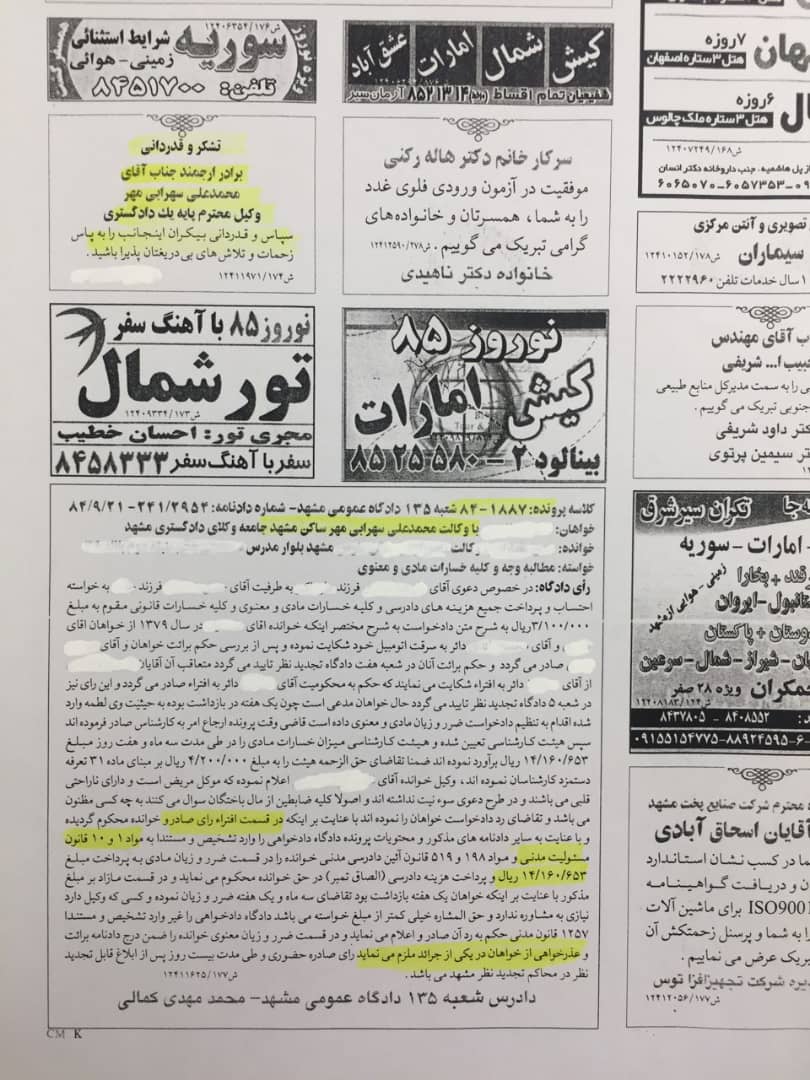 ش۱۲۴۰۶۳۵۴/۱۷۶
سوریه
شرایط استثنائی
زمینی - هوائی
تلفن: ۸۴۵۱۷۰۰
ویژه نوروز
کیش
شمال
امارات
عشق آباد
تمام اقساط
۸۵۲۱۳۱۴
آرمان سیر
تشکر و قدردانی
برادر ارجمند جناب آقای
محمدعلی سهرابی مهر
وکیل محترم پایه یك دادگستری
سپاس و قدردانی بیکران اینجانب را به پاس
زحمات و تلاش‌های بی‌دریغتان پذیرا باشید.
ش۱۲۴۱۱۹۷۱/۱۷۴
سرکار خانم دکتر هاله رکنی
موفقیت در آزمون ورودی فلوی غدد
را به شما، همسرتان و خانواده‌های
گرامی تبریک می گوییم. ش۱۲۴۱۲۵۹۰/۲۷۸
خانواده دکتر ناهیدی
نوروز ۸۵ با آهنگ سفر
تور شمال
ش۱۲۴۰۹۳۳۴/۱۷۳
مجری تور: احسان خطیب
سفر با آهنگ سفر ۸۴۵۸۳۳۳
نوروز ۸۵
کیش امارات
بینالود ۲ - ۸۵۲۵۵۸۰
کلاسه پرونده: ۱۸۸۷-۸۴ شعبه ۱۳۵ دادگاه عمومی مشهد- شماره دادنامه: ۲۹۵۴/۲۴۱-۸۴/۹/۲۱
خواهان: با وکالت محمدعلی سهرابی مهر ساکن مشهد جامعه وکلای دادگستری مشهد
خوانده: وکالت مشهد بلوار مدرس
خواسته: مطالبه وجه و کلیه خسارات مادی و معنوی
رأی دادگاه: در خصوص دعوی آقای فرزند به طرفیت آقای فرزند به خواسته
احتساب و پرداخت جمیع هزینه های دادرسی و کلیه خسارات مادی و معنوی و کلیه خسارات قانونی مقوم به مبلغ
۳/۱۰۰/۰۰۰ریال به شرح متن دادخواست به شرح مختصر اینکه خوانده اقای در سال ۱۳۷۹ از خواهان اقای
و آقای دائر به سرقت اتومبیل خود شکایت نموده و پس از بررسی حکم برائت خواهان و آقای
صادر می گردد و حکم برائت آنان در شعبه هفت دادگاه تجدید نظر تایید می گردد متعاقب آن آقایان
از آقای دائر به افتراء شکایت می نمایند که حکم به محکومیت آقای دائر به افتراء صادر می گردد و این رای نیز
در شعبه ۵ دادگاه تجدید نظر تایید می گردد حال خواهان مدعی است چون یک هفته در بازداشت بوده به حیثیت وی لطمه وارد
شده اقدام به تنظیم دادخواست ضرر و زیان مادی و معنوی داده است قاضی وقت پرونده ارجاع امر به کارشناس صادر فرموده اند
سپس هیئت کارشناسی تعیین شده و هیئت کارشناسی میزان خسارات مادی را در طی مدت سه ماه و هفت روز مبلغ
۱۴/۱۶۰/۶۵۳ ریال برآورد نموده اند ضمنا تقاضای حق الزحمه هیئت را به مبلغ ۴/۲۰۰/۰۰۰ ریال بر مبنای ماده ۳۱ تعرفه
دستمزد کارشناسان نموده اند، وکیل خوانده آقای اعلام نموده که موکل مریض است و دارای ناراحتی
قلبی می باشند و در طرح دعوی سوء نیت نداشته اند و اصولاً کلیه ضابطین از مال باختگان سوال می کنند به چه کسی مظنون
می باشد و تقاضای رد دادخواست خواهان را نموده اند با عنایت بر اینکه در قسمت افتراء رای صادر و خوانده محکوم گردیده
و با عنایت به سایر دادنامه های مذکور و محتویات پرونده دادگاه دادخواهی را وارد تشخیص و مستندا به مواد ۱ و ۱۰ قانون
مسئولیت مدنی و مواد ۱۹۸ و ۵۱۹ قانون آئین دادرسی مدنی خوانده را در قسمت ضرر و زیان مادی به پرداخت مبلغ
۱۴/۱۶۰/۶۵۳ ریال و پرداخت هزینه دادرسی (الصاق تمبر) در حق خوانده محکوم می نماید و در قسمت مازاد بر مبلغ
مذکور با عنایت بر اینکه خواهان یک هفته بازداشت بود تقاضای سه ماه و یک هفته ضرر و زیان نموده و کسی که وکیل دارد
نیازی به مشاوره ندارد و حق المشاره خیلی کمتر از مبلغ خواسته می باشد دادگاه دادخواهی را غیر وارد تشخیص و مستندا
۱۲۵۷ قانون مدنی حکم به رد آن صادر و اعلام می نماید و در قسمت ضرر و زیان معنوی خوانده را ضمن درج دادنامه برائت
و عذرخواهی از خواهان در یکی از جرائد ملزم می نماید رای صادره حضوری و طی مدت بیست روز پس از ابلاغ قابل تجدید
نظر در محاکم تجدید نظر مشهد می باشد. ش۱۲۴۱۱۶۲۵/۱۷۷
دادرس شعبه ۱۳۵ دادگاه عمومی مشهد- محمد مهدی کمالی
CM K
۷روزه
هتل۳ستاره اصفهان
۶روزه
هتل۳ستاره ملک چالوس
ش۱۲۴۰۷۲۴۹/۱۶۸
از پل هاشمیه، جنب داروخانه دکتر انسان
۶۰۶۵۰۷۰-۶۰۵۷۳۵۳-۰۹
تصویری و آنتن مرکزی
سیماران ش۱۲۴۱۰۱۵۲/۱۷۸
۱ سال خدمات تلفن ۲۲۲۲۹۶۰
ب آقای مهندس
حبیب ا... شریفی
ی را به سمت مدیرکل منابع طبیعی
جنوبی تبریک می گوییم.
کتر داود شریفی
تر سیمین پرتوی
تکران سیر شرق
- امارات - سوریه
رقند + بخارا
ستانبول - ایروان
دوستان + پاکستان
ان - شیراز - شمال - سرعین
زمینی - هوایی از مشهد
جمکران ویژه ۲۸ صفر
ش۱۲۴۰۸۱۸۳/۱۲۴
۸۴۰۸۵۵۲ - ۸۴۳۷۸۰۵
۰۹۱۵۵۱۵۴۷۷۵-۸۸۹۲۴۵۹۵-۶
ه محترم شرکت صنایع پخت مشهد
آقایان اسحاق آبادی
ما در کسب نشان استاندارد
ان و دریافت گواهینامه
ISO9001 برای ماشین آلات
را به شما و پرسنل زحمتکش آن
بریک عرض می نماییم.
دیره شرکت تجهیزافزا توس
ش۱۲۴۱۲۰۵۶/۱۷۷